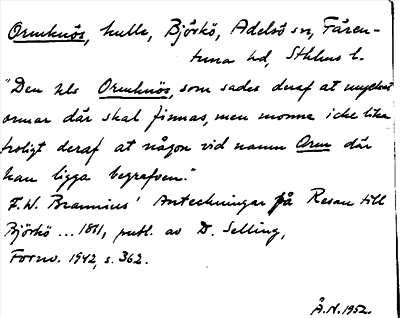 Ormknös, kulle, Björkö, Adelsö sn, Fären-
tuna hd, Sthlms l.
"Den kls Ormknös, som sades deraf at myckit
ormar där skal finnas, men monne icke lika
troligt deraf at någon vid namn Orm där
kan ligga begrafven."
F. W. Brannius' Anteckningar på Resan till
Björkö ... 1811, publ. av D. Selling,
Fornv. 1942, s. 362.
Å.N. 1952.